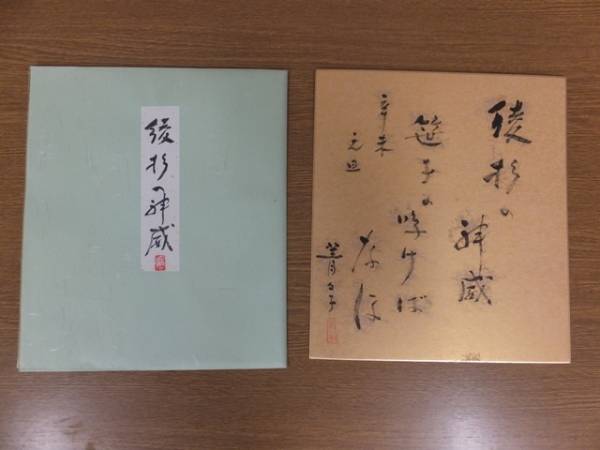 綾杉の神威
綾杉の
神威
笹子の啼けば
なほ
辛未
元旦
菁々子